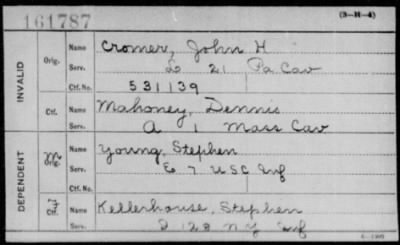 161787
(3-H-4)
INVALID
Orig.
Name Cromer, John H
Serv. L 21 Pa Cav
Ctf. No. 531139
Ctf.
Name Mahoney, Dennis
Serv. A 1 Mass Cav
DEPENDENT
m Orig.
Name Young, Stephen
Serv. E 7 USC Inf
Ctf. No.
Ctf.
Name Kellerhouse, Stephen
Serv. 128 NY Inf